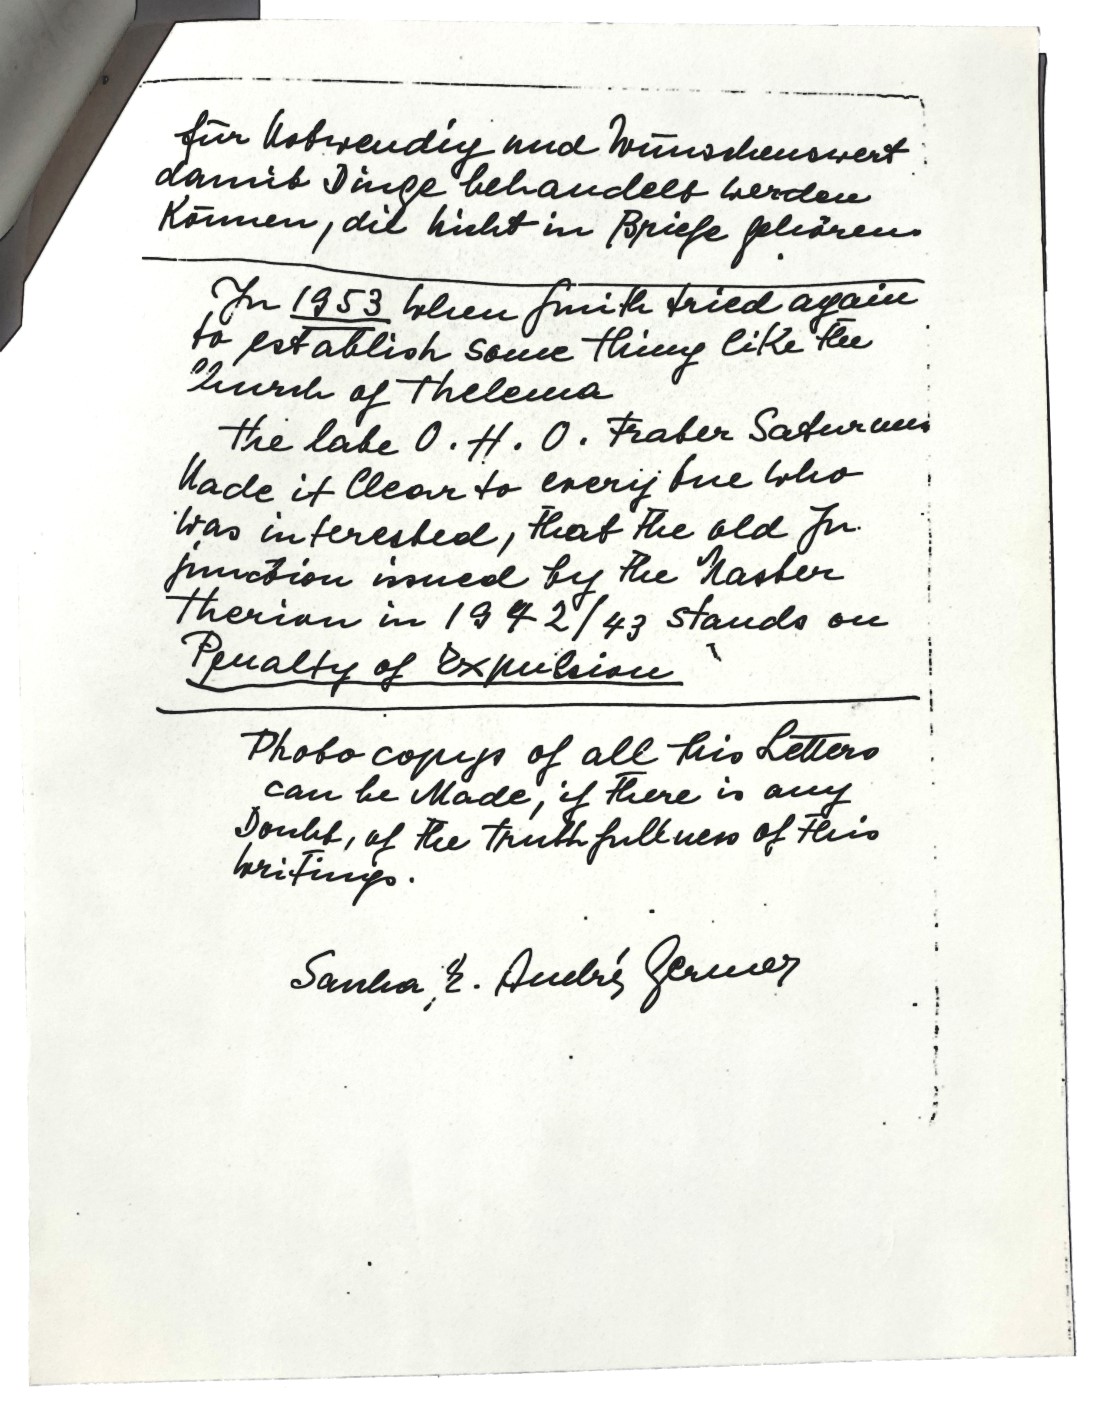 für Notwendig und Wünschenswert
damit Dinge behandelt werden
Können, die nicht in Briefe gehören.
In 1953 when Smith tried again
to establish some thing like the
Church of Thelema
the late O. H. O. Frater Saturnus
Made it Clear to every one who
was interested, that the old In
junction issued by the Master
Therion in 1942/43 stands on
Penalty of Expulsion
Photo copys of all this Letters
can be Made, if there is any
Doubt, of the truthfullness of this
writings.
Sasha E. André Germer